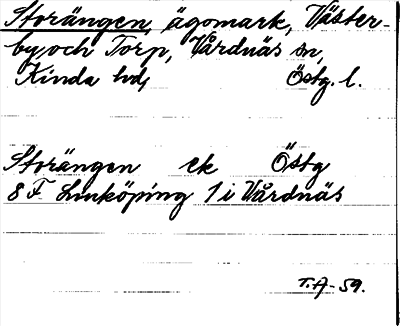 Storängen, ägomark, Väster-
by, och Torp, Vårdnäs sn,
Kinda hd, Östg. l.
Storängen ek Östg
8 F Linköping 1 i Vårdnäs
T.A-59.